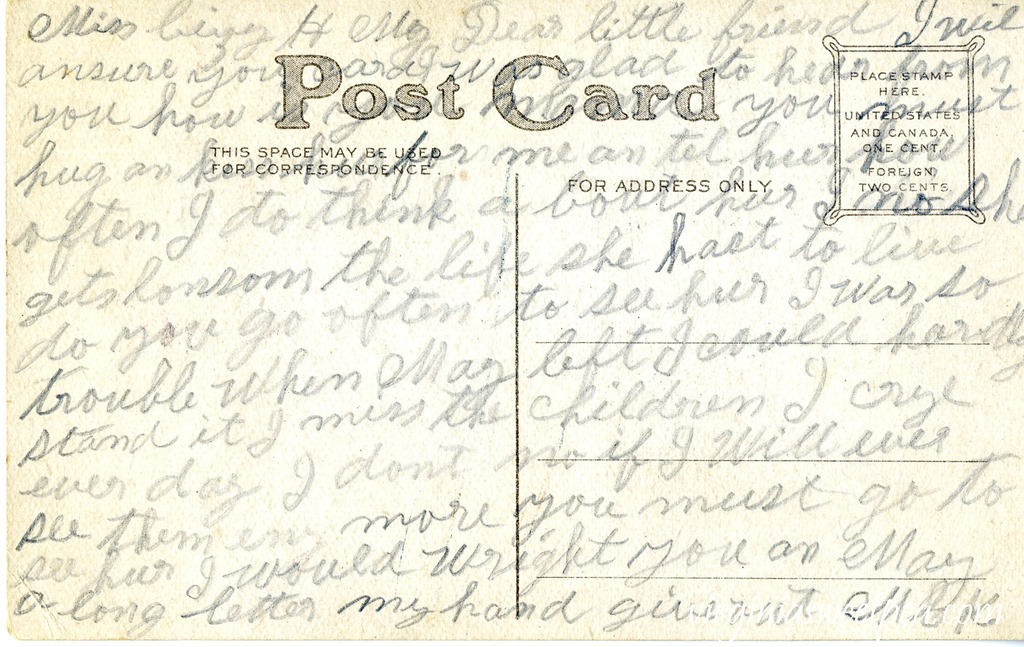 Miss H My Dear little friend I will
ansure you card was glad to hear from
you how is you you must
Post Card
PLACE STAMP
HERE.
UNITED STATES
AND CANADA,
ONE CENT.
FOREIGN,
TWO CENTS.
THIS SPACE MAY BE USED
FOR CORRESPONDENCE.
FOR ADDRESS ONLY
hug an for me an tel hur how
often I do think a bout hur I no she
gets lonsom the life she hast to live
do you go often to see hur I was so
trouble when May left I could hardly
stand it I miss the children I crye
ever day I dont no if I will ever
see them eny more you must go to
see hur I would wright you an May
a long letter my hand give out